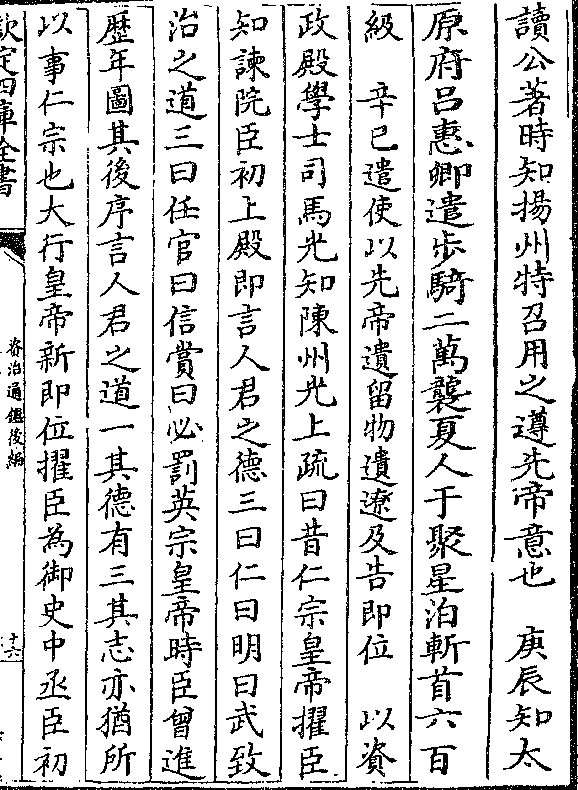 讀公著時知揚州特召用之遵先帝意也　庚辰知太
原府呂惠卿遣步騎二萬襲夏人于聚星泊斬首六百
級　辛巳遣使以先帝遺留物遺遼及告即位　以資
政殿學士司馬光知陳州光上疏曰昔仁宗皇帝擢臣
知諫院臣初上殿即言人君之德三曰仁曰明曰武致
治之道三曰任官曰信賞曰必罰英宗皇帝時臣曾進
歴年圖其後序言人君之道一其德有三其志亦猶所
以事仁宗也大行皇帝新即位擢臣為御史中丞臣初
欽定四庫全書
資治通鑑後編
十六